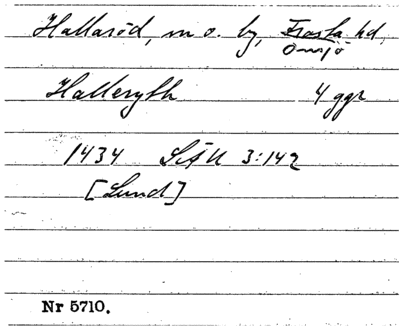 Hallaröd, m o. by, Frosta hd,
Onsjö
Hallerydh 4 ggr
1434 SÄU 3:142
[Lund]
Nr 5710.